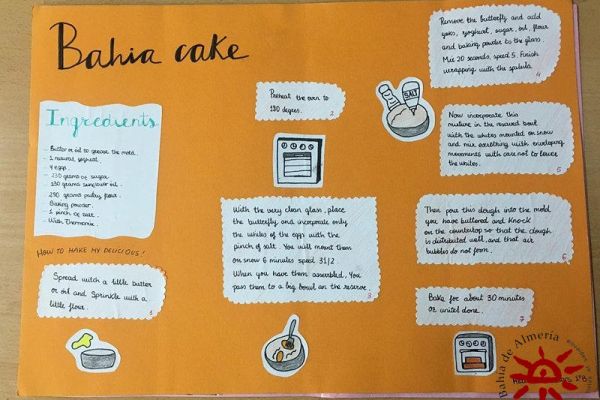 Bahia cake
Ingredients
- Butter or oil to grease the mold.
- 1 natural yoghut.
- 4 eggs.
- 230 grams of sugar.
- 130 grams sunflower oil.
- 250 grams pastry flour.
- Baking powder.
- 1 pinch of salt.
- With Thermomix.
HOW TO MAKE MY DELICIOUS!
Spread witch a little butter
or oil and sprinkle with a
little flour.
1
Preheat the oven to
180 degres.
2
With the very clean glass, place
the butterfly and incorporate only
the whites of the eggs with the
pinch of salt. You will mount them
on snow 6 minutes speed 3 1/2
When you have them assembled, You
pass them to a big bowl on the reserve.
3
SALT
Remove the butterfly and add
yoks, yoghurt, sugar, oil, flour
and baking powder to the glass.
Mix 20 seconds, speed 5. Finish
wrapping with the spatula.
4
Now incorporate this
mixture in the reserved bowl
with the whites mounted on snow
and mix everything with enveloping
movements with care not to lower
the whites.
5
Then pour this dough into the mold
you have buttered and knock
on the countertop so that the dough
is distributed well and that air
bubbles do not form.
6
Bake for about 30 minutes
or until done.
7
Bahía de Almería
1ºB